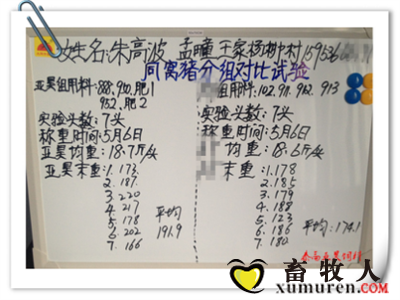 姓名:朱高波 孟疃王家杨树村 159536
同窝猪分组对比试验
亚昊组用料:888,910,肥1
952,肥2
组用料:102,911,912,913
实验头数:7头
实验头数:7头
称重时间:5月6日
称重时间:5月6日
亚昊均重:18.7斤/头
均重:18.6斤/头
亚昊末重:1.173
2.187
3.220
4.217
5.178
6.202
7.166
平均
191.9
末重:1.178
2.185
3.179
4.188
5.123
6.186
7.180
平均:174.1
畜牧人
xumuren.com